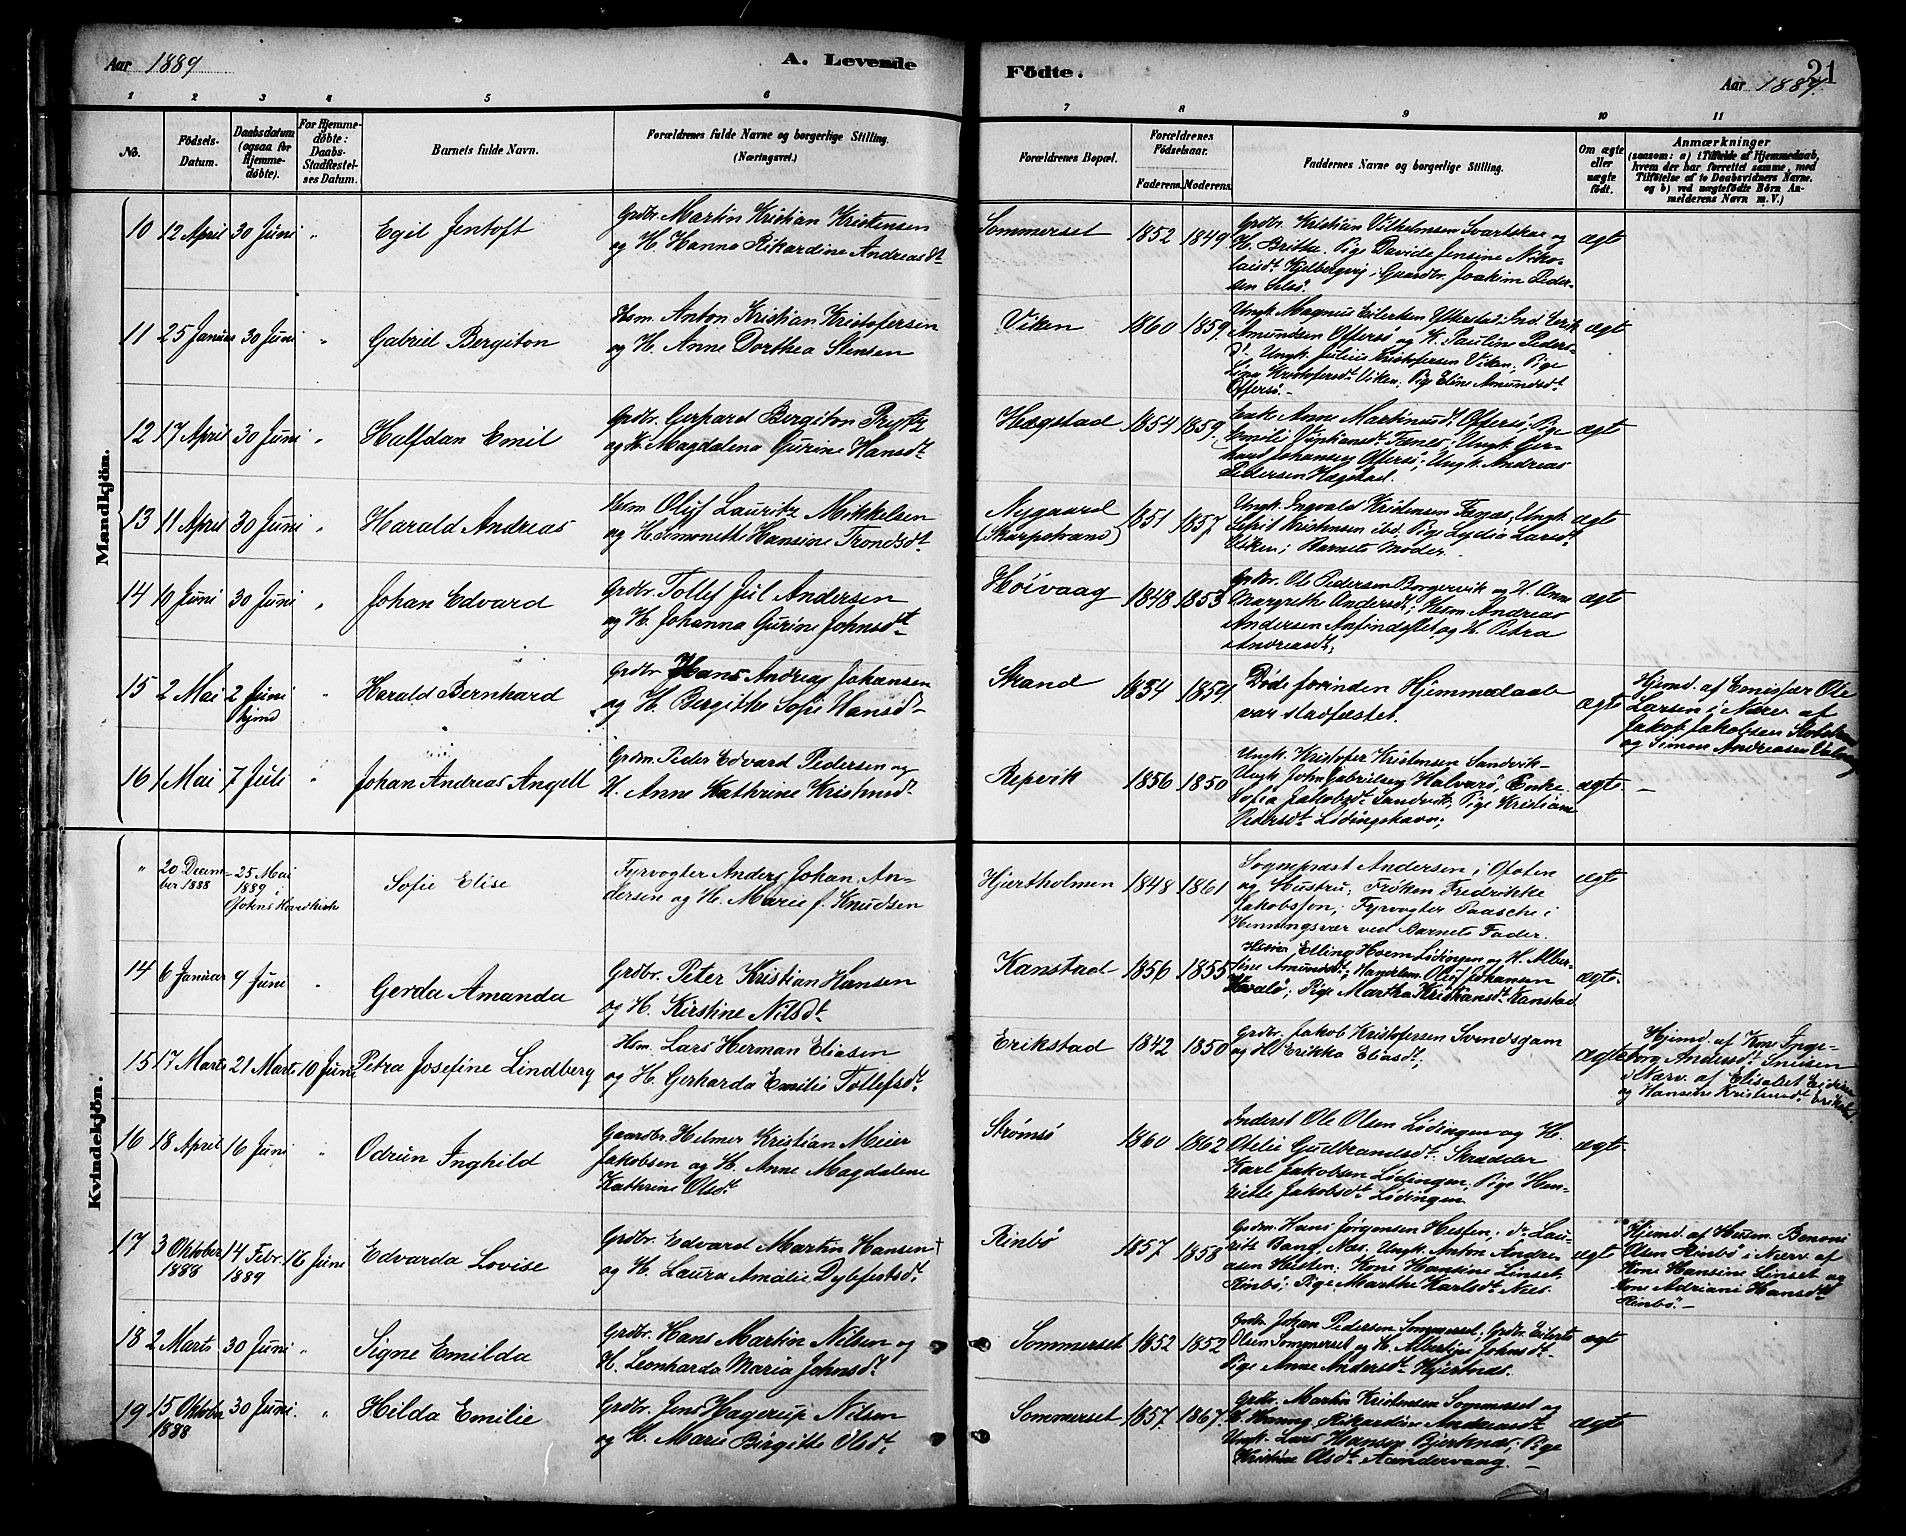 Aar 1889
A. Levende
Födte.
21
Aar 1889.
1 2 3 4 5 6 7 8 9 10 11
No.
Födsels-
Datum.
Daabsdatum
(ogsaa for
Hjemme-
döbte).
For Hjemme-
döbte:
Daabs-
Stadfæstel-
ses Datum.
Barnets fulde Navn.
Forældrenes fulde Navne og borgerlige Stilling.
(Næringsvei.)
Forældrenes Bopæl.
Forældrenes
Födselsaar.
Faderens. Moderens.
Faddernes Navne og borgerlige Stilling.
Om ægte
eller
uægte
födt.
Anmærkninger
(saasom: a) i Tilfælde af Hjemmedaab,
hvem der har forrettet samme, med
Tilföielse af to Daabsvidners Navne.
og b) ved uægtefödte Börn An-
melderens Navn m. V.)
Mandkjön.
10 12 April 30 Juni " Egil Jentoft
Grdbr. Martin Kristian Kristensen
og H. Hanna Rikardine Andreasdt
Sommerset 1852 1849
Grdbr. Kristian Vilhelmsen Svartskar og
H. Britha. Pige Davida Jensine Niko-
laisdt Kjelbergvig; Gaardbr. Joakim Peder-
sen
ægte
11 25 Januar 30 Juni " Gabriel Bergiton
Hsm. Anton Kristian Kristofersen
og H. Anne Dorthea Stensen
Viken 1860 1859.
Ungk. Magnus Eilertsen Ytterstad; Ind. Erik
Amundsen Offersø og H. Pauline Peders-
dt. Ungk. Julius Kristofersen Viken; Pige
Lina Kristofersdt Viken; Pige Eline Amundsdt
Offersø.
ægte
12 17 April 30 Juni " Halfdan Emil
Grdbr. Gerhard Bergiton Prytz
og H. Magdalena Gurine Hansdt
Hægstad 1854 1859.
Enke Anne Martinusdt Offersø; Pige
Emilie; Ungk. Ger-
hard Johansen Offersø; Ungk. Andreas
Pedersen Hægstad.
ægte
13 11 April 30 Juni " Harald Andreas
Husm. Oluf Lauritz Mikkelsen
og H. Simonette Hansine Trondsdt
Nygaard
(Skarpstrand) 1851 1857
Ungk. Ingvald Kristensen; Ungk.
Kristensen ibd. Pige Lydia Larsdt
Viken; Barnets Moder.
ægte
14 10 Juni 30 Juni " Johan Edvard
Grdbr. Tollef Jul Andersen
og H. Johanna Gurine Johnsdt
Høivaag 1848 1853
Grdbr. Ole Pedersen Borgervik og H. Anne
Margrethe Andersdt; Hsm. Andreas
Andersen Anfindslet og H. Petra
Andreasdt;
ægte
15 2 Mai 2 Juni
hjmd " Harald Bernhard
Grdbr. Hans Andreas Johansen
og H. Bergithe Sofie Hansdt
Strand 1854 1859.
Døde forinden Hjemmedaab
var stadfæstet.
ægte
Hjemd. af Emisfær Ole
Larsen i Nærv. af
Jakob Jakobsen
og Simon Andreasen
16 1 Mai 7 Juli " Johan Andreas Angell
Grdm. Peder Edvard Pedersen og
H. Anne Kathrine Kristensdt
Repvik 1856 1850
Ungk. Kristofer Kristensen Sandvik
Ungk. John Gabrielsen Halvarø, Enke
Sofia Jakobsdt Sandvik, Pige Kristiane
Pedersdt Lødingshavn;
ægte
Kvindekjön.
" 20 Decem-
ber 1888 25 Mai
1889 i
Ofotens Hovedkirke Sofie Elise
Fyrvogter Anders Johan An-
dersen og H. Marie f. Knudsen
Hjertholmen 1848 1861
Sognepræst Andersen i Ofoten
og Hustru; Frøken Fredrikke
Jakobsson; Fyrvogter Paasche i
Henningsvær ved Barnets Fader.
ægte
14 6 Januar 9 Juni " Gerda Amanda
Grdbr. Peter Kristian Hansen
og H. Kirstine Nilsdt
Kanstad 1856 1855
Elling Hveem Lødingen og H. Alber-
tine Amundsdt; Handelsm. Oluf Johansen
Hvalø; Pige Martha Kristiansdt Kanstad
ægte
15 17 Marts 21 Marts 10 Juni Petra Josefine Lindberg
Hsm. Lars Herman Eliasen
og H. Gerharda Emilie Tollefsdt
Erikstad 1842 1850
Grdbr. Jakob Kristofersen Svendsgam
og H. Erikka Eliasdt;
ægte
Hjemd. af Kone Inge-
borg Andersdt
i Nærv. af Elisabet
og Hansine Kristensdt Erikstad
16 18 April 16 Juni " Odrun Inghild
Gaardbr. Helmer Kristian Meier
Jakobsen og H. Anne Magdalene
Kathrine Olsdt
Strømsø 1860 1862
Inderst Ole Olsen Lødingen og H.
Otelie Gudbrandsdt. Skrædder
Karl Jakobsen Lødingen; Pige Hen-
riette Jakobsdt Lødingen
ægte
17 3 Oktober
1888 14 Febr.
1889 16 Juni Edvarda Lovise
Grdbr. Edvard Martin Hansen
og H. Laura Amalie Dylefestsdt
Rinbø 1857 1858
Grdm. Hans Jørgensen Hesten; do Lau-
ritz Bang, Næs, Ungk. Anton Andre-
asen Hesten; Kone Hansine Linset,
Rinbø; Pige Marthe Karlsdt Næs.
ægte
Hjemd. af Husm. Benoni
Olsen Rinbø i Nærv. af
Kone Hansine Linset og
Kone Adriane Hansdt
Rinbø.
18 2 Marts 30 Juni " Signe Emilda
Grdbr. Hans Martin Nilsen og
H. Leonharda Maria Johnsdt
Sommerset 1852 1852
Grdbr. Johan Pedersen Sommerset; Grdbr. Eilert
Olsen Sommerset og H. Albertine Johnsdt
Pige Anne Andersdt
ægt
19 15 Oktober
1888 30 Juni. " Hilda Emilie
Grdbr. Jens Hagerup Nilsen
og H. Marie Birgitte Olsdt
Sommerset 1857 1867.
Grdbr. Martin Kristensen Sommerset og
H. Hanna Rikardine Andreasdt
Ungk. Lars Hansen Bjerknæs; Pige
Kristine Olsdt
ægte